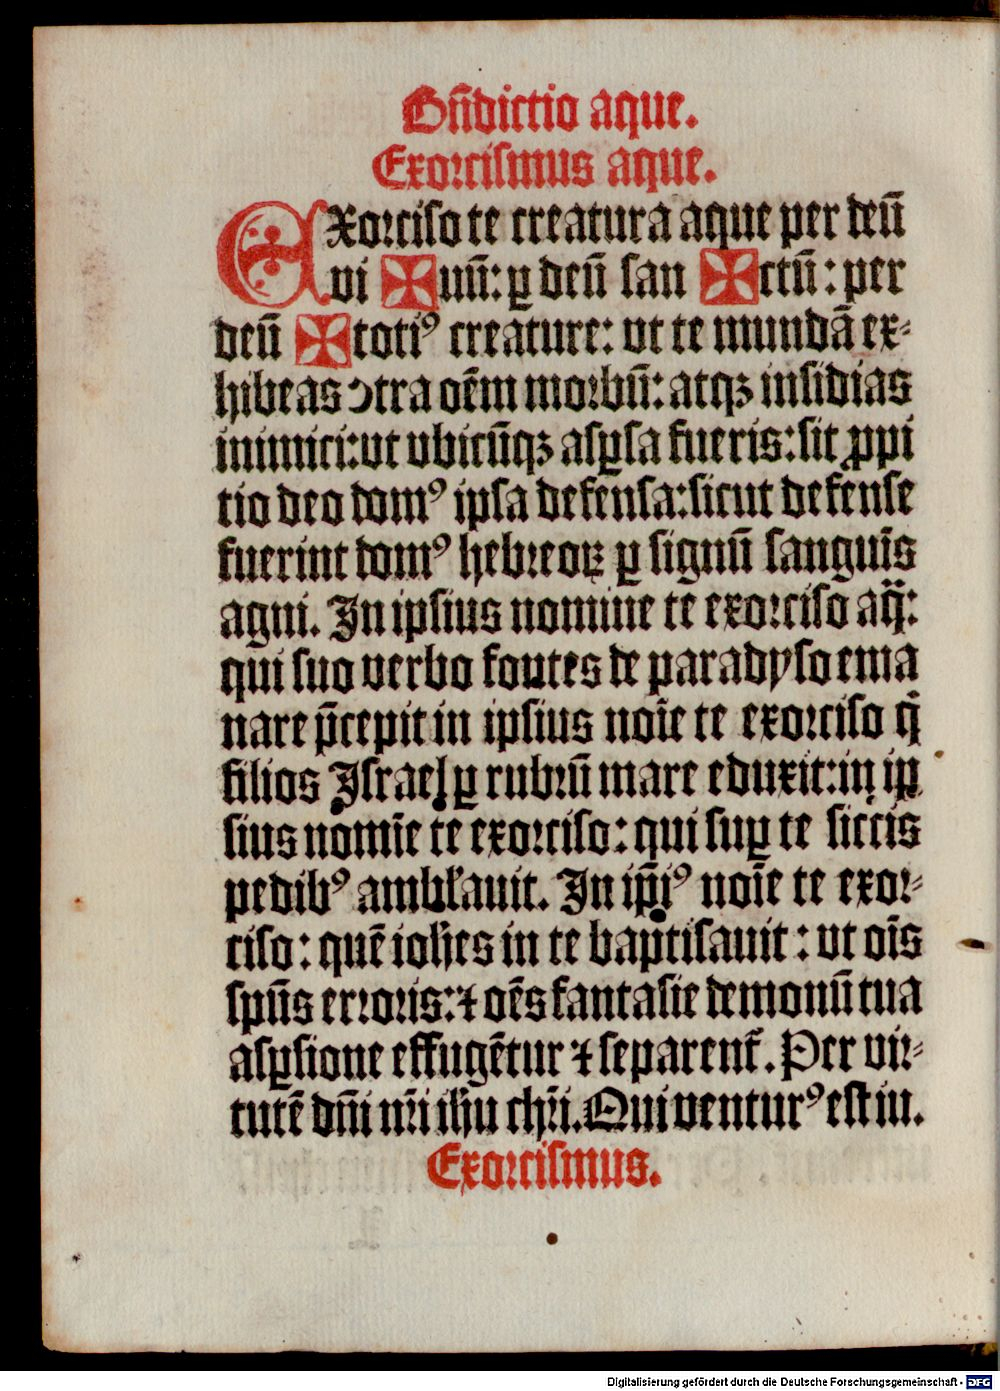 Bn̄dictio aque.
Exorcismus aque.
EXorciso te creatura aque per deū
vi ✠ uū: ꝑ deū san ✠ ctū: per
deū ✠ totiꝰ creature: vt te mundā ex⸗
hibeas ꝯtra oēm morbū: atqꝫ insidias
inimici: vt vbicūqꝫ asꝑsa fueris: sit ꝓpi
tio deo domꝰ ipsa defensa: sicut defense
fuerint domꝰ hebreoꝝ ꝑ signū sanguīs
agni. In ipsius nomine te exorciso aq̄:
qui suo verbo fontes de paradyso ema
nare p̄cepit in ipsius noīe te exorciso q̄
filios Israel ꝑ rubrū mare eduxit: in ip
sius nomīe te exorciso: qui suꝑ te siccis
pedibꝰ ambłauit. In ip̄iꝰ noīe te exor⸗
ciso: quē ioħes in te baptisauit: vt oīs
spūs erroris: ⁊ oēs fantasie demonū tua
asꝑsione effugētur ⁊ separent᷑. Per vir⸗
tutē dn̄i nr̄i iħu chr̄i. Qui venturꝰ est iu.
Exorcismus.
Digitalisierung gefördert durch die Deutsche Forschungsgemeinschaft - DFG